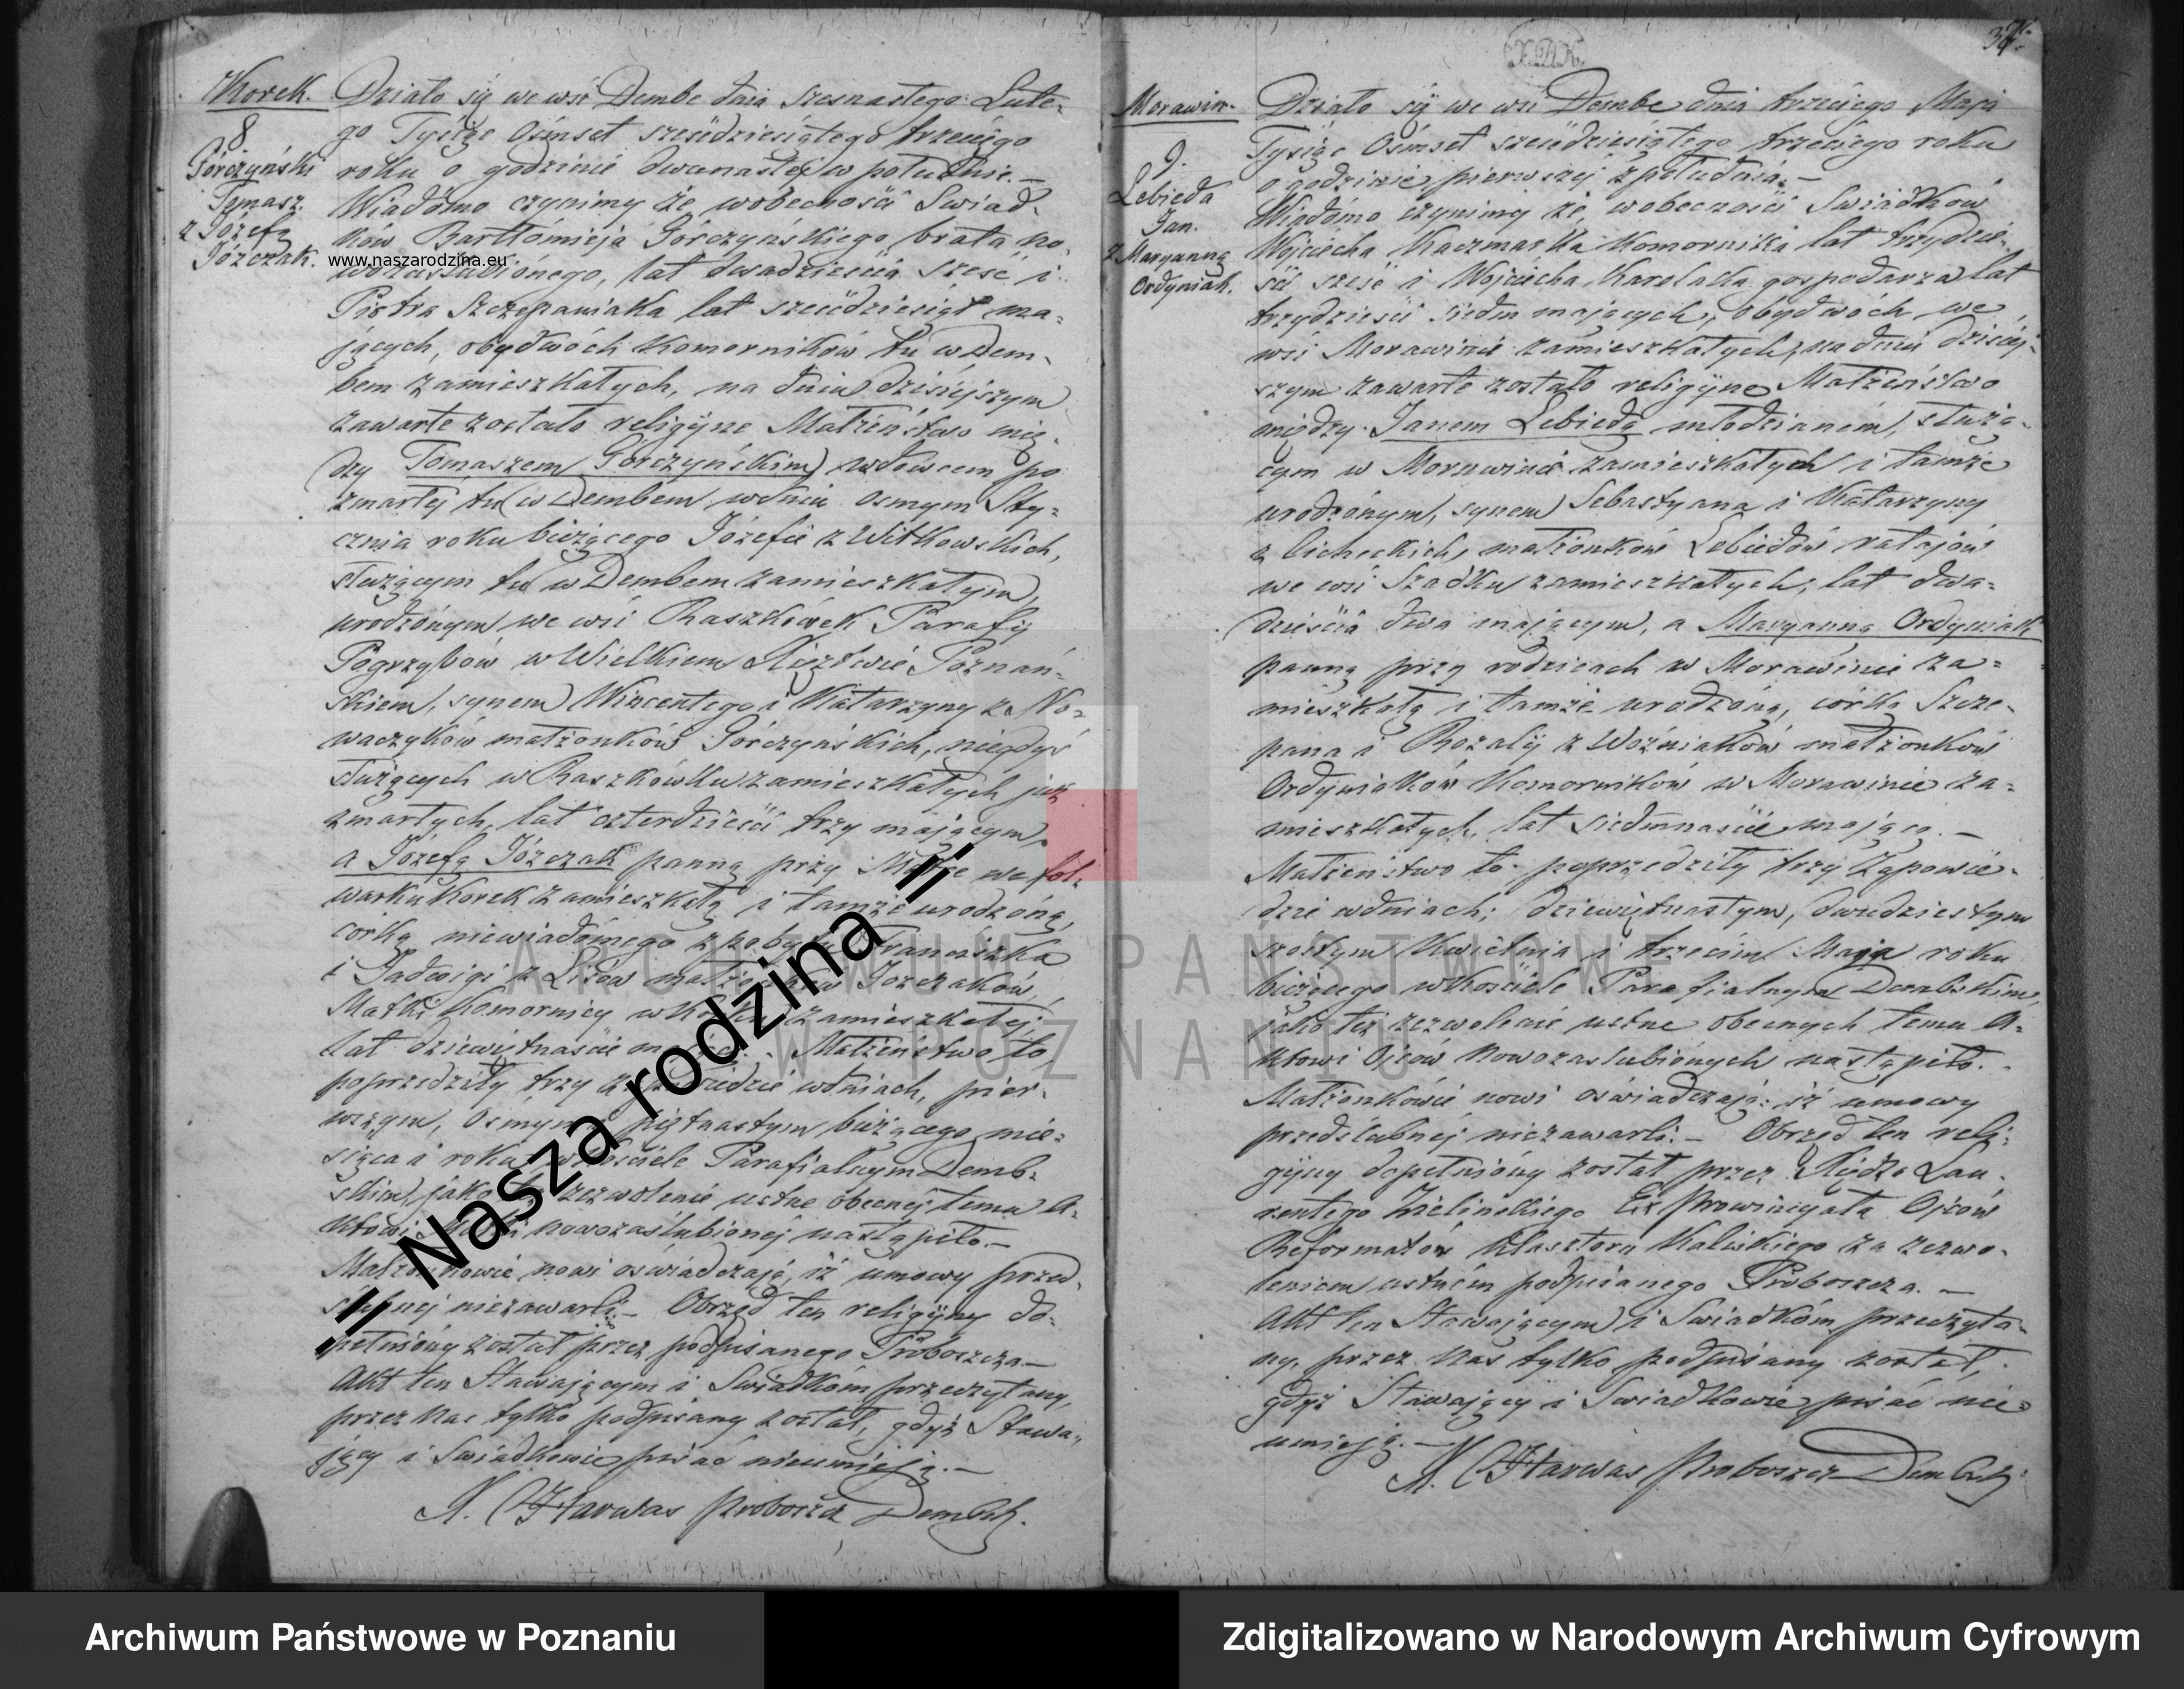 Korek.
8
Górczyński
Tomasz.
z Józefą
Józczak.
Działo się we wsi Dembe dnia szesnastego Lute-
go Tysiąc Ośmset sześdziesiątego trzeciego
roku o godzinie dwunastej w południe.—
Wiadomo czynimy że wobecności Swiad-
ków Bartłomieja Górczyńskiego brata no-
wozaslubionego, lat dwadzieścia sześć i
Piotra Szczepaniaka lat sześdziesiąt ma-
jących, obydwóch Komorników tu w Dem-
bem zamieszkałych, na dniu dzisiejszym
zawarte zostało religijne Małżeństwo mię-
dzy Tomaszem Górczyńskim, wdowcem po
zmarłej tu w Dembem wdniu osmym Sty-
cznia roku bieżącego Józefie z Witkowskich,
służącym tu w Dembem zamieszkałym,
urodzónym we wsi Raszkówek Parafij
Pogrzybów w Wielkiem Xięztwie Poznań-
skiem, synem Wincentego i Katarzyny z No-
waczyków małżonków Górczyńskich, niegdyś
służących w Raszkówku zamieszkałych już
zmarłych, lat czterdzieści trzy mającym,
a Józefą Józczak panną przy Matce we fol-
warku Korek zamieszkałą i tamże urodzóną,
córką niewiadómego z pobytu Franciszka
i Jadwigi z Lisów małżonków Józczaków,
Matki Komornicy w Korku zamieszkałej,
lat dziewiętnaście mającą. Małżeństwo to
poprzedziły trzy zapowiedzie wdniach, pier-
wszym, ósmym i piętnastym bieżącego mie-
siąca i roku w Kościele Parafialnym Demb-
skim, jako też zezwolenie ustne obecnej temu A-
ktowi Matki nowozaślubionej nastąpiło.—
Małżonkowie nowi oświadczają, iż umowy przed-
ślubnej niezawarli.— Obrzęd ten religijny do-
pełnióny został przez podpisanego Proboszcza.—
Akt ten Stawającym i Swiadkóm przeczytany,
przez Nas tylko podpisany został, gdyż Stawa-
jący i Swiadkowie pisać nieumieją.—
N. Harwas Proboszcz Dembski.
www.naszarodzina.eu
„Nasza rodzina"
34.
Morawin.
9.
Lebieda
Jan.
z Maryanną
Ordyniak.
Działo się we wsi Dembe dnia trzeciego Maja
Tysiąc Ośmset sześdziesiątego trzeciego roku
o godzinie pierwszej z południa.—
Wiadómo czynimy że, wobecności Swiadków
Wojciecha Kaczmarka Komornika lat trzydzie-
ści sześć i Wojciecha Karolaka gospodarza lat
trzydzieści siedm mających, obydwóch we
wsi Morawinie zamieszkałych, na dniu dzisiej-
szym zawarte zostało religijne Małżeństwo
między Janem Lebiedą młodzianem, służą-
cym w Morawinie zamieszkałych i tamże
urodzónym, synem Sebastyana i Katarzyny
z Cicheckich, małżonków Lebiedów ratajów
we wsi Szadku zamieszkałych, lat dwa-
dzieścia dwa mającym, a Maryanną Ordyniak
panną przy rodzicach w Morawinie za-
mieszkałą i tamże urodzóną, córką Szcze-
pana i Rozalij z Woźniaków małżonków
Ordyniaków Komorników w Morawinie za-
mieszkałych, lat siedmnaście mającą.—
Małżeństwo to poprzedziły trzy Zapowie-
dzie wdniach: dziewiętnastym, dwudziestym
szóstym Kwietnia i trzecim Maja roku
bieżącego w Kościele Parafialnym Dembskim,
jako też zezwolenie ustne obecnych temu A-
ktowi Ojców Nowozaslubiónych nastąpiło.—
Małżonkówie nowi oświadczają: iż umowy
przedślubnej niezawarli.— Obrzęd ten reli-
gijny dopełnióny został przez Xiędza Lau-
rentego Zielinskiego Ex Prowincyała Ojców
Reformatów Klasztoru Kaliskiego za zezwo-
leniem ustnem podpisanego Proboszcza.—
Akt ten Stawającym i Swiadkóm przeczyta-
ny, przez Nas tylko podpisany został,
gdyż Stawający i Swiadkowie pisać nie-
umieją.—
N. Harwas Proboszcz Dembski
ARCHIWUM PAŃSTWOWE
W POZNANIU
Archiwum Państwowe w Poznaniu
Zdigitalizowano w Narodowym Archiwum Cyfrowym